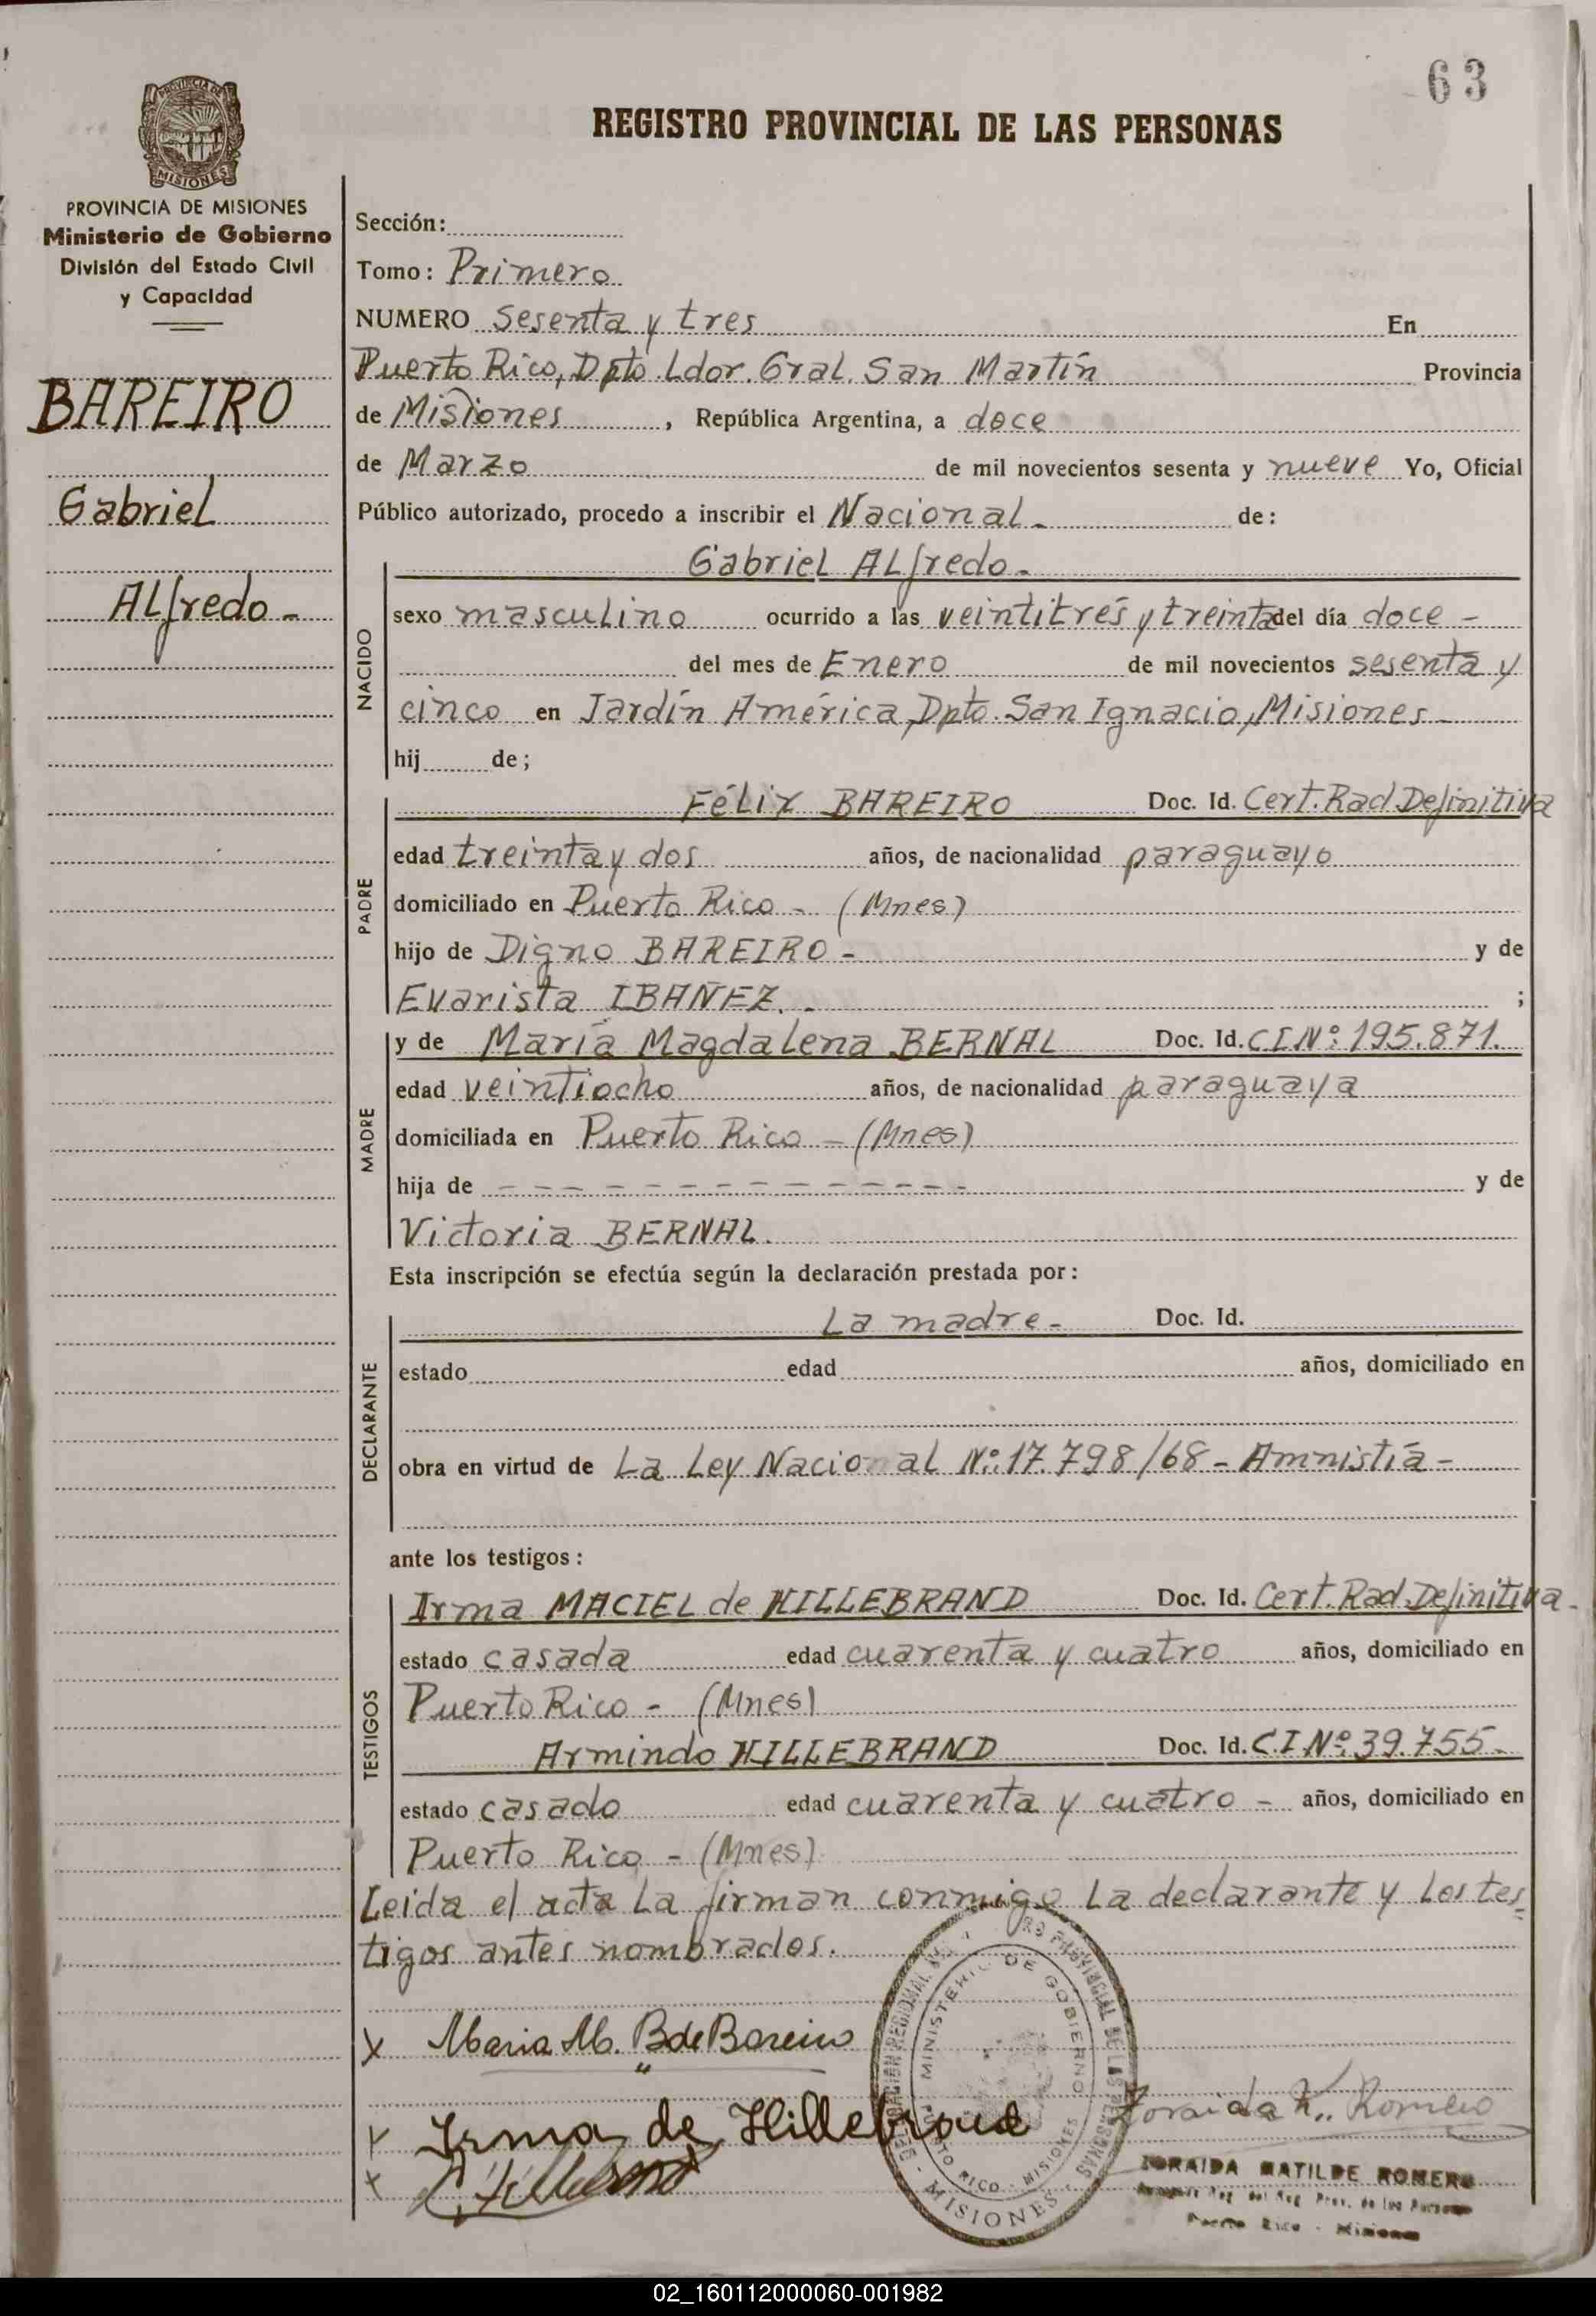 63
PROVINCIA DE
MISIONES
REGISTRO PROVINCIAL DE LAS PERSONAS
PROVINCIA DE MISIONES
Ministerio de Gobierno
División del Estado Civil
y Capacidad
BAREIRO
Gabriel
ALfredo -
Sección:
Tomo: Primero
NUMERO Sesenta y tres En
Puerto Rico, Dpto. Ldor. Gral. San Martín Provincia
de Misiones, República Argentina, a doce
de Marzo de mil novecientos sesenta y nueve Yo, Oficial
Público autorizado, procedo a inscribir el Nacional - de:
NACIDO
Gabriel ALfredo -
sexo masculino ocurrido a las veintitrés y treinta del día doce -
del mes de Enero de mil novecientos sesenta y
cinco en Jardín América, Dpto. San Ignacio, Misiones -
hij de;
PADRE
Félix BAREIRO Doc. Id. Cert. Rad Definitiva
edad treinta y dos años, de nacionalidad paraguayo
domiciliado en Puerto Rico - (Mnes)
hijo de Digno BAREIRO - y de
Evarista IBAÑEZ. - ;
MADRE
y de María Magdalena BERNAL Doc. Id. C I Nº: 195.871.
edad veintiocho años, de nacionalidad paraguaya
domiciliada en Puerto Rico - (Mnes)
hija de - - - - - - - - - - - - - - y de
Victoria BERNAL.
Esta inscripción se efectúa según la declaración prestada por:
DECLARANTE
La madre - Doc. Id.
estado edad años, domiciliado en
obra en virtud de La Ley Nacional Nº: 17.798/68 - Amnistía -
ante los testigos:
TESTIGOS
Irma MACIEL de HILLEBRAND Doc. Id. Cert. Rad. Definitiva -
estado casada edad cuarenta y cuatro años, domiciliado en
Puerto Rico - (Mnes)
Armindo HILLEBRAND Doc. Id. C.I Nº: 39.755 -
estado casado edad cuarenta y cuatro - años, domiciliado en
Puerto Rico - (Mnes)
Leida el acta La firman conmigo La declarante y Los tes=
tigos antes nombrados.
x Maria M. B de Bareiro
x Irma de Hillebrand
x
MINISTERIO DE GOBIERNO
PUERTO RICO - MISIONES
PROVINCIAL DE LAS PERSONAS
- MISIONES -
Zoraida M. Romero
ZORAIDA MATILDE ROMERO
Puerto Rico - Misiones
02_160112000060-001982